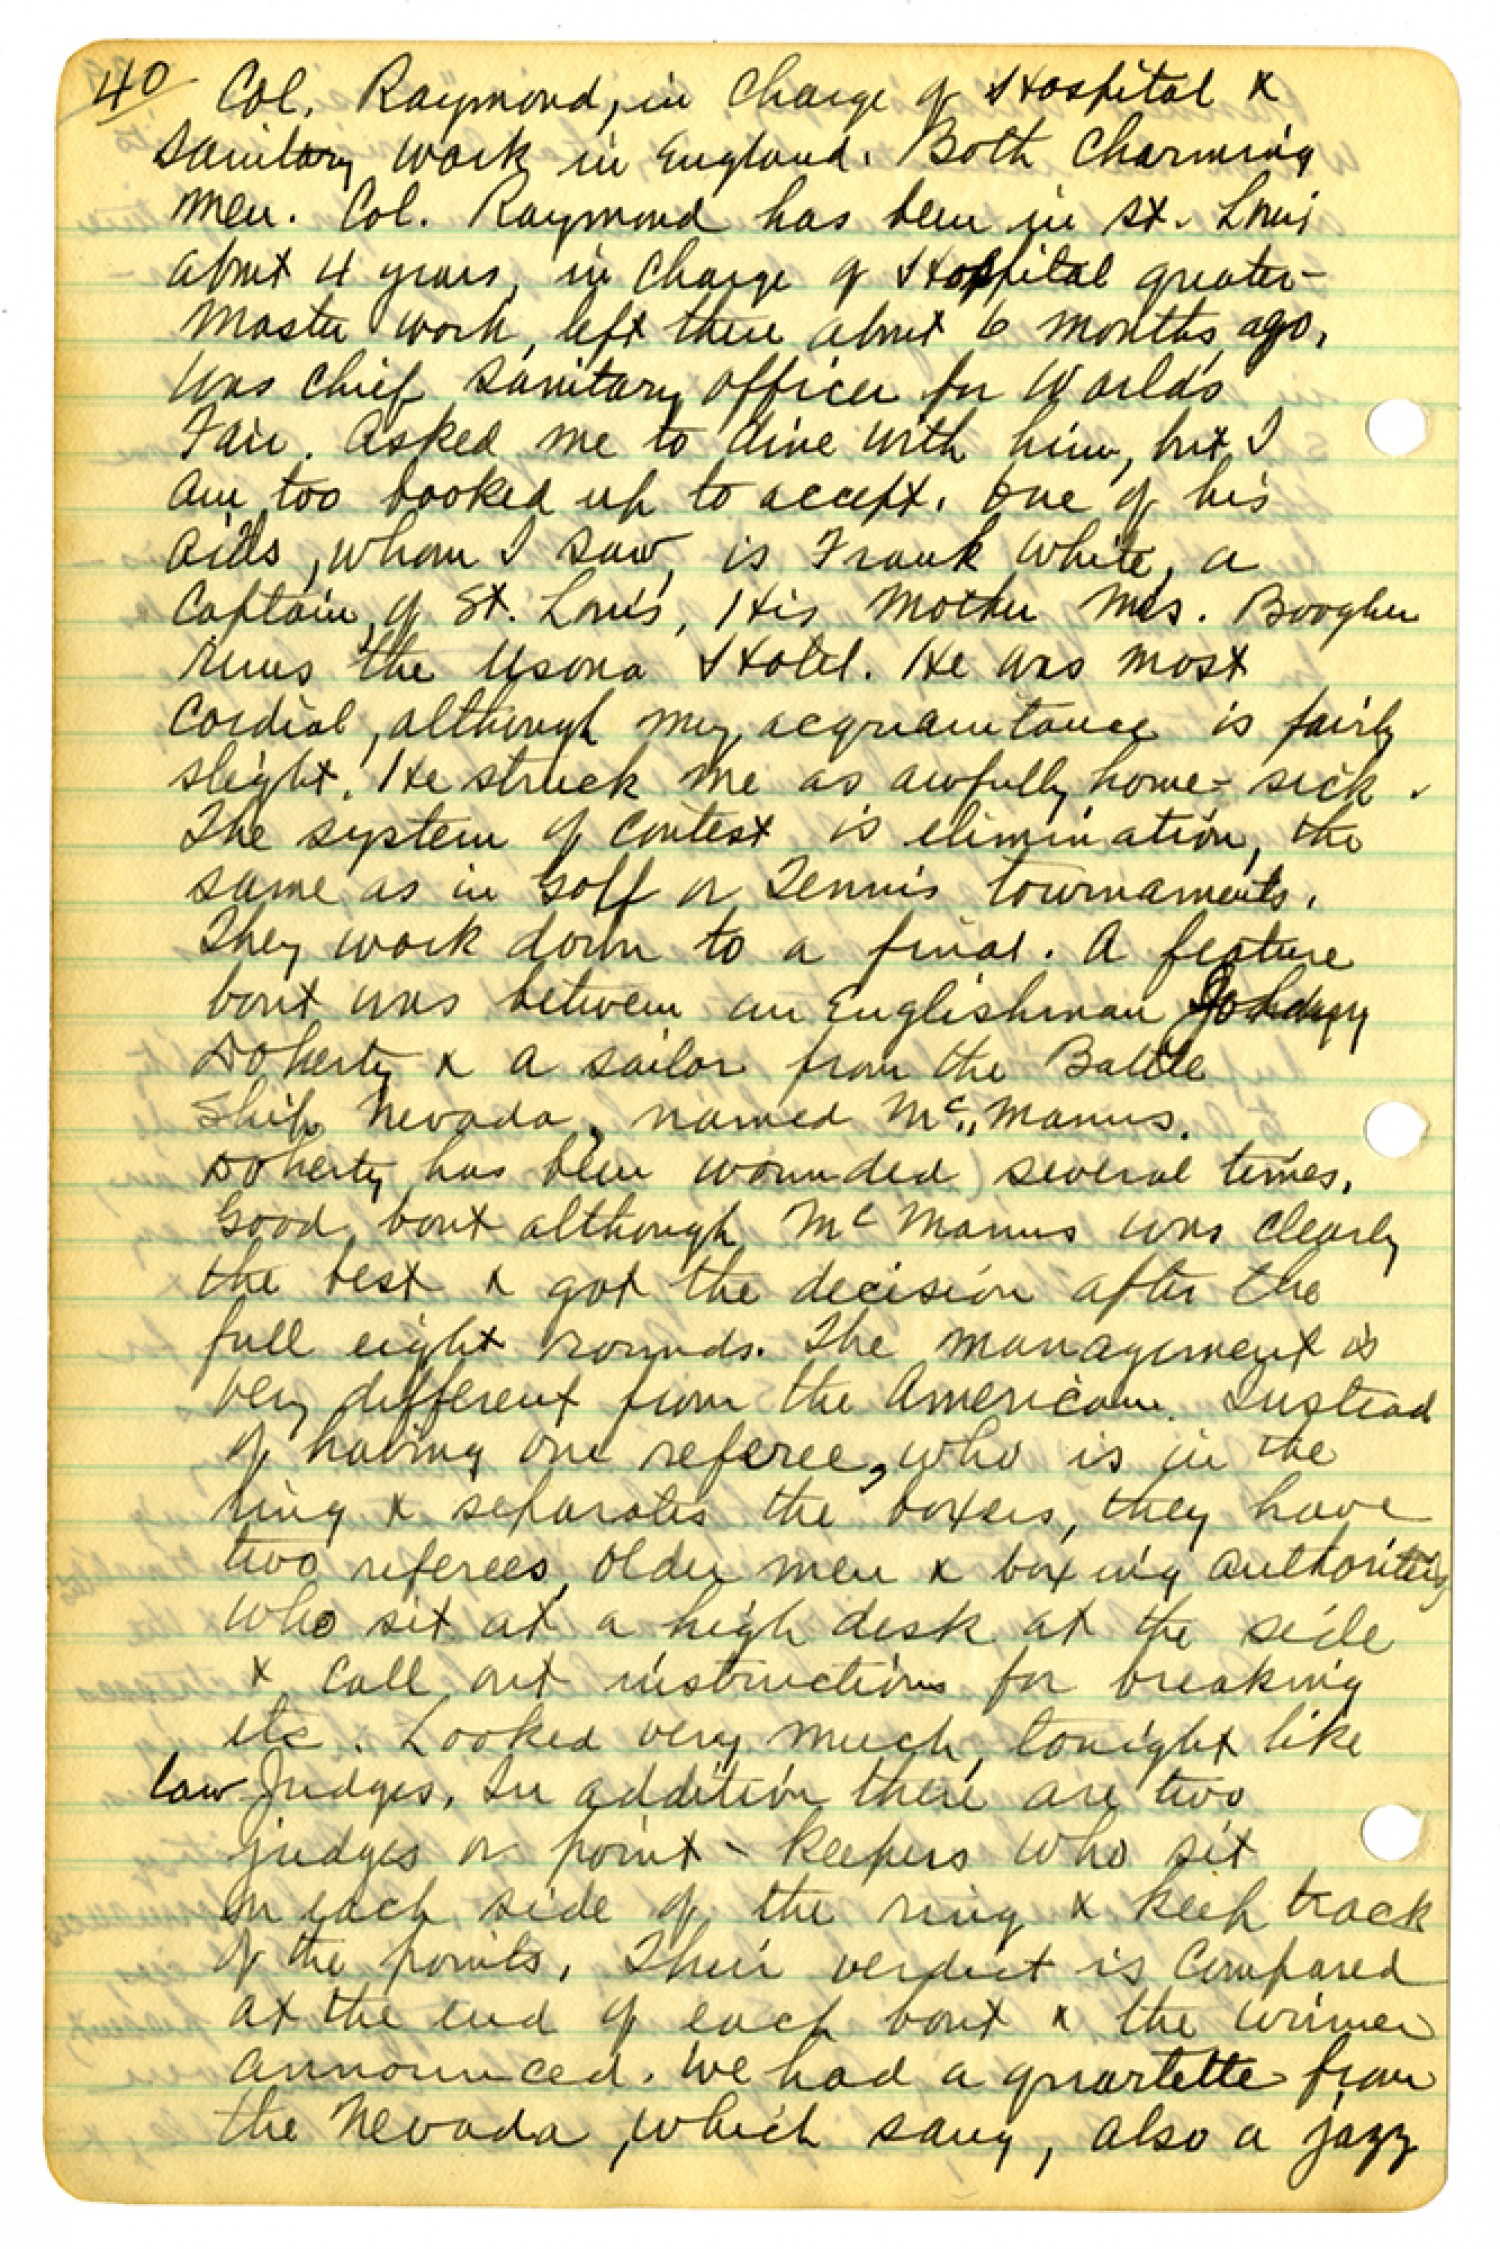 40
Col. Raymond, in charge of Hospital &
Sanitary work in England. Both charming
men. Col. Raymond has been in St. Louis
about 4 years, in charge of Hospital quater-
master work, left there about 6 months ago.
Was chief sanitary officer for Worlds
Fair. Asked me to dine with him, but I
am too booked up to accept. One of his
aids, whom I saw, is Frank White, a
Captain, of St. Louis, His Mother Mrs. Boogher
runs the Usona Hotel. He was most
cordial, although my acquaintance is fairly
slight. He struck me as awfully home-sick.
The system of contest is elimination, the
same as in Golf or Tennis tournaments.
They work down to a final. A feature
bout was between an Englishman
Doherty & a sailor from the Battle
Ship Nevada, named Mc Manus.
Doherty has been wounded several times.
Good bout although Mc Manus was clearly
the best & got the decision after the
full eight rounds. The management is
very different from the American. Instead
of having one referee, who is in the
ring & separates the boxers, they have
two referees, older men & boxing authorities
who sit at a high desk at the side
& call out instructions for breaking
etc. Looked very much, tonight like
law Judges. In addition there are two
judges or point-keepers who sit
on each side of the ring & keep track
of the points. Their verdict is compared
at the end of each bout & the winner
announced. We had a quartette from
the Nevada, which sang, also a jazz